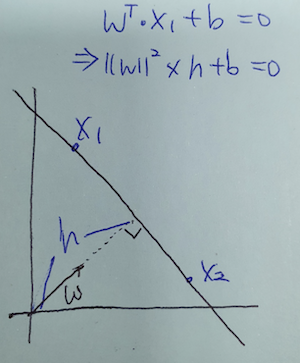 W^T · X₁ + b = 0
⇒ ||W||² × h + b = 0
X₁
h
W
X₂